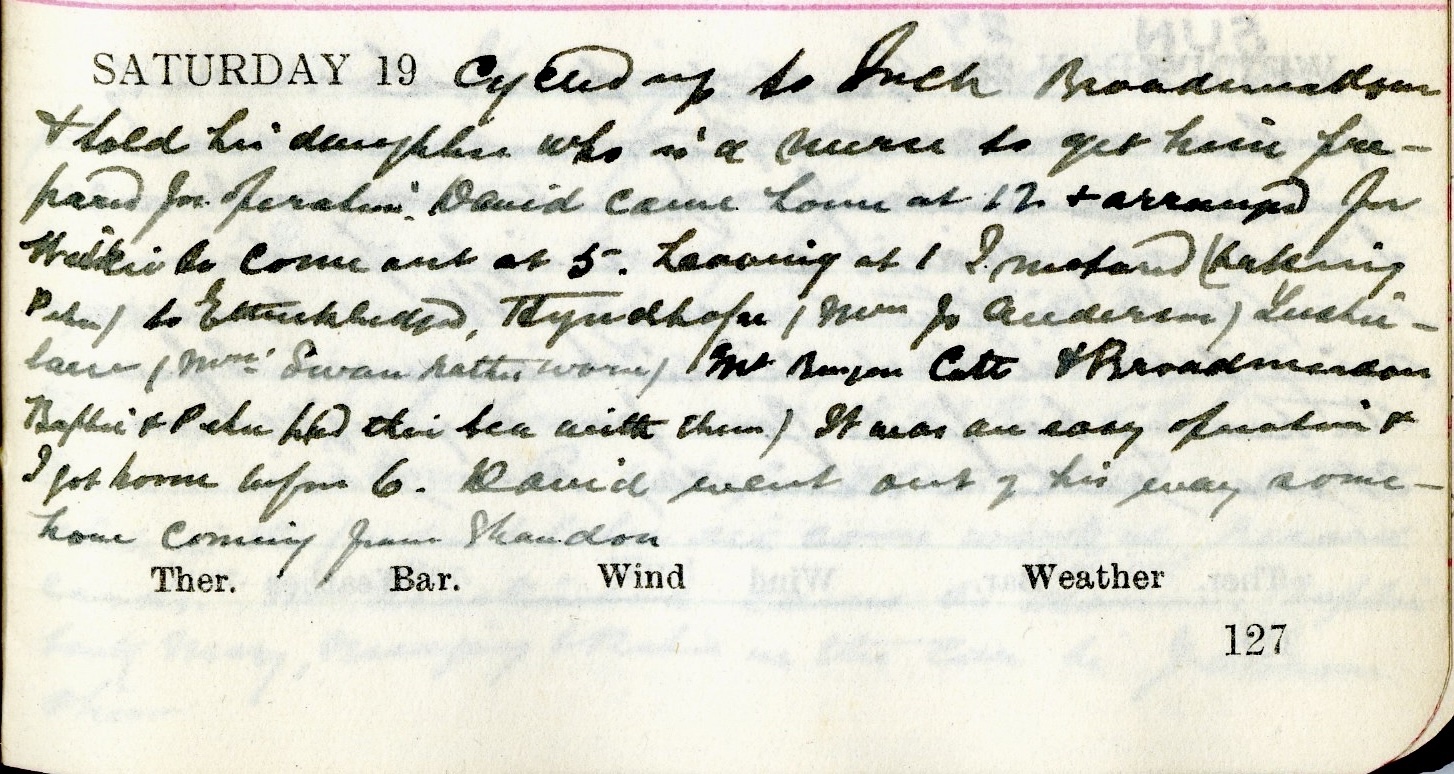 SATURDAY 19 Cycled up to Inch Broadmeadows
& told his daughter who is a nurse to get him pre-
pared for operation. David came home at 12 & arranged for
Wilkie to come out at 5. Leaving at 1 I motored (taking
Peter) to Ettrickbridgend, Hyndhope (Mrs Jo Anderson)
(Mrs Swan rather worse) Cott & Broadmeadows
& Peter had their tea with them) It was an easy operation &
I got home before 6. David went out of his way some-
how coming from Shandon
Ther. Bar. Wind Weather
127